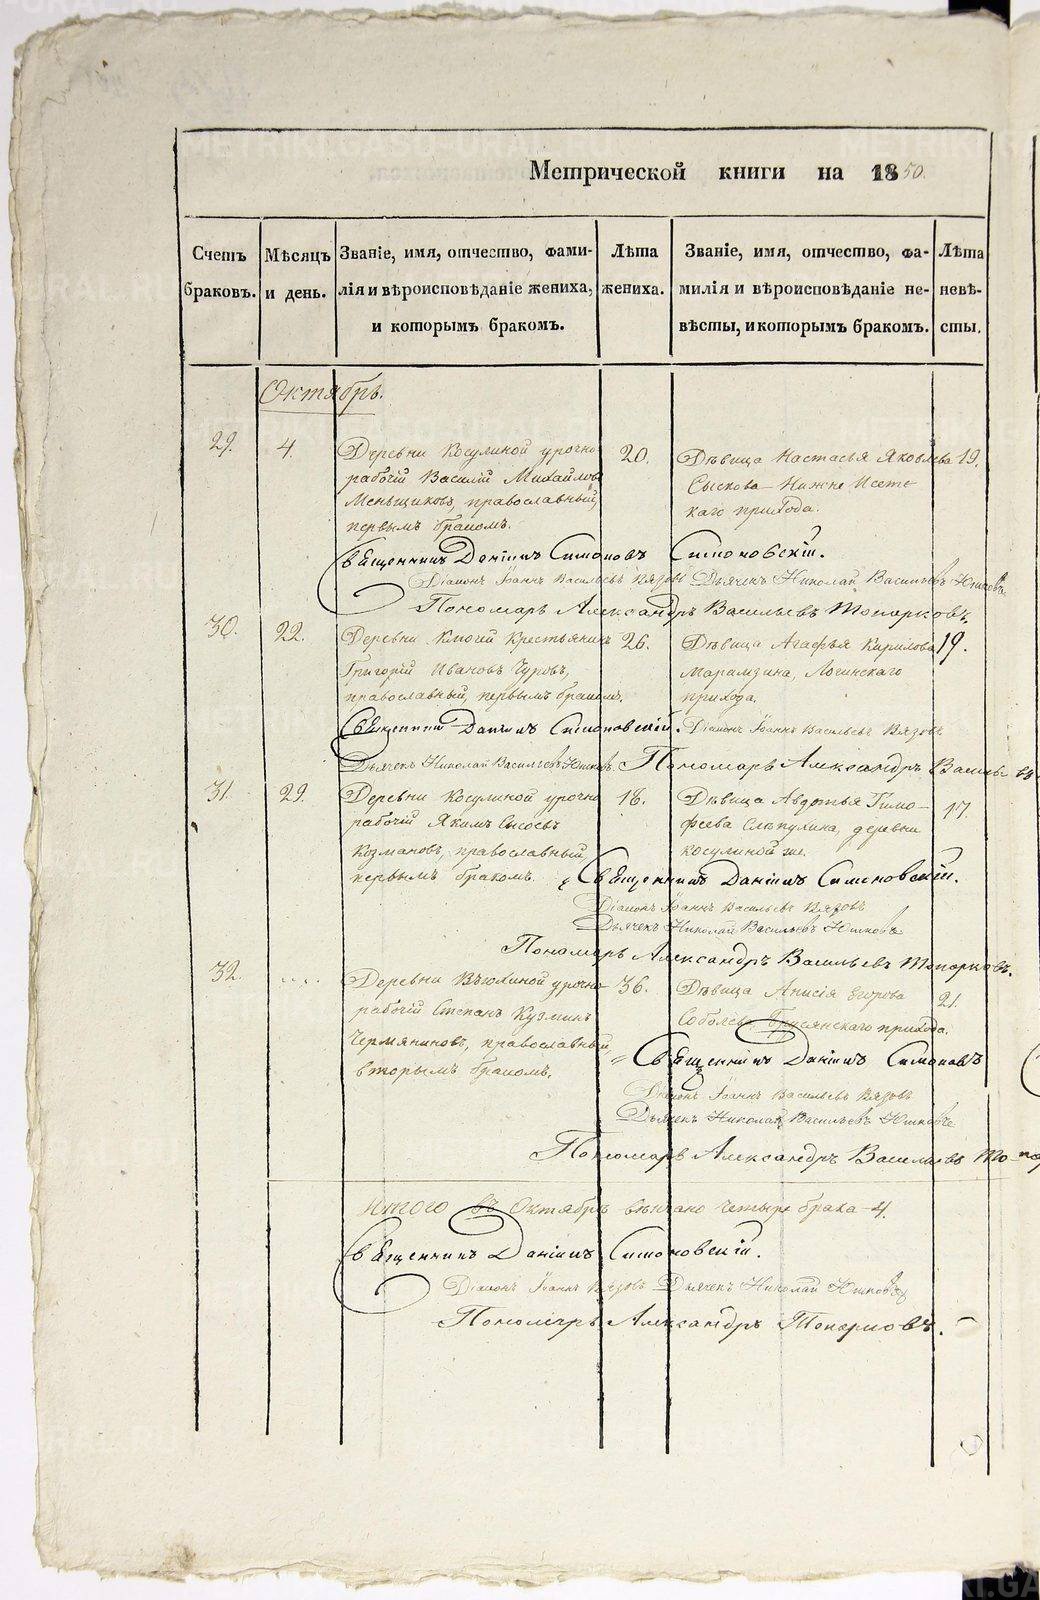 Метрической книги на 1850.
Счетъ браковъ.
Мѣсяцъ и день.
Званіе, имя, отчество, фами-
лія и вѣроисповѣданіе жениха,
и которымъ бракомъ.
Лѣта жениха.
Званіе, имя, отчество, фа-
милія и вѣроисповѣданіе не-
вѣсты, и которымъ бракомъ.
Лѣта невѣ-
сты.
Октябрь.
29. 4. Деревни Косулиной урочно 20. Дѣвица Настасья Яковлева 19.
рабочій Василій Михайловъ Сыскова Нижне Исетс-
Меньщиковъ, православный, каго прихода.
первымъ бракомъ.
Священникъ Даніилъ Симоновскій.
Діаконъ Іоаннъ Васильевъ Вязовъ Дьячекъ Николай Васильевъ
Пономарь Александръ Васильевъ Топорковъ.
30. 22. Деревни Ключей крестьянинъ 26. Дѣвица Агафья Кирилова 19.
Григорій Ивановъ Чуровъ, Марамзина, Логинскаго
православный, первымъ бракомъ. прихода.
Священникъ Даніилъ Симоновскій. Діаконъ Іоаннъ Васильевъ Вязовъ
Дьячекъ Николай Васильевъ Пономарь Александръ Василь
31. 29. Деревни Косулиной урочно 18. Дѣвица Авдотья Тимо- 17.
рабочій Якимъ Сысоевъ феева Слѣпухина, деревни
Козмановъ, православный, косулиной же.
первымъ бракомъ. Священникъ Даніилъ Симоновскій.
Діаконъ Іоаннъ Васильевъ Вязовъ
Дьячекъ Николай Васильевъ
Пономарь Александръ Васильевъ Топорковъ.
32. .... Деревни урочно 36. Дѣвица Анисія Егорова 21.
рабочій Степанъ Кузминъ Соболева Брусянскаго прихода.
православный, Священникъ Даніилъ Симоновъ
вторымъ бракомъ.
Діаконъ Іоаннъ Васильевъ Вязовъ
Дьячекъ Николай Васильевъ
Пономарь Александръ Васильевъ Топор
Итого въ Октябрѣ вѣнчано четыре брака 4.
Священникъ Даніилъ Симоновскій.
Діаконъ Іоаннъ Вязовъ Дьячекъ Николай
Пономарь Александръ Топорковъ.